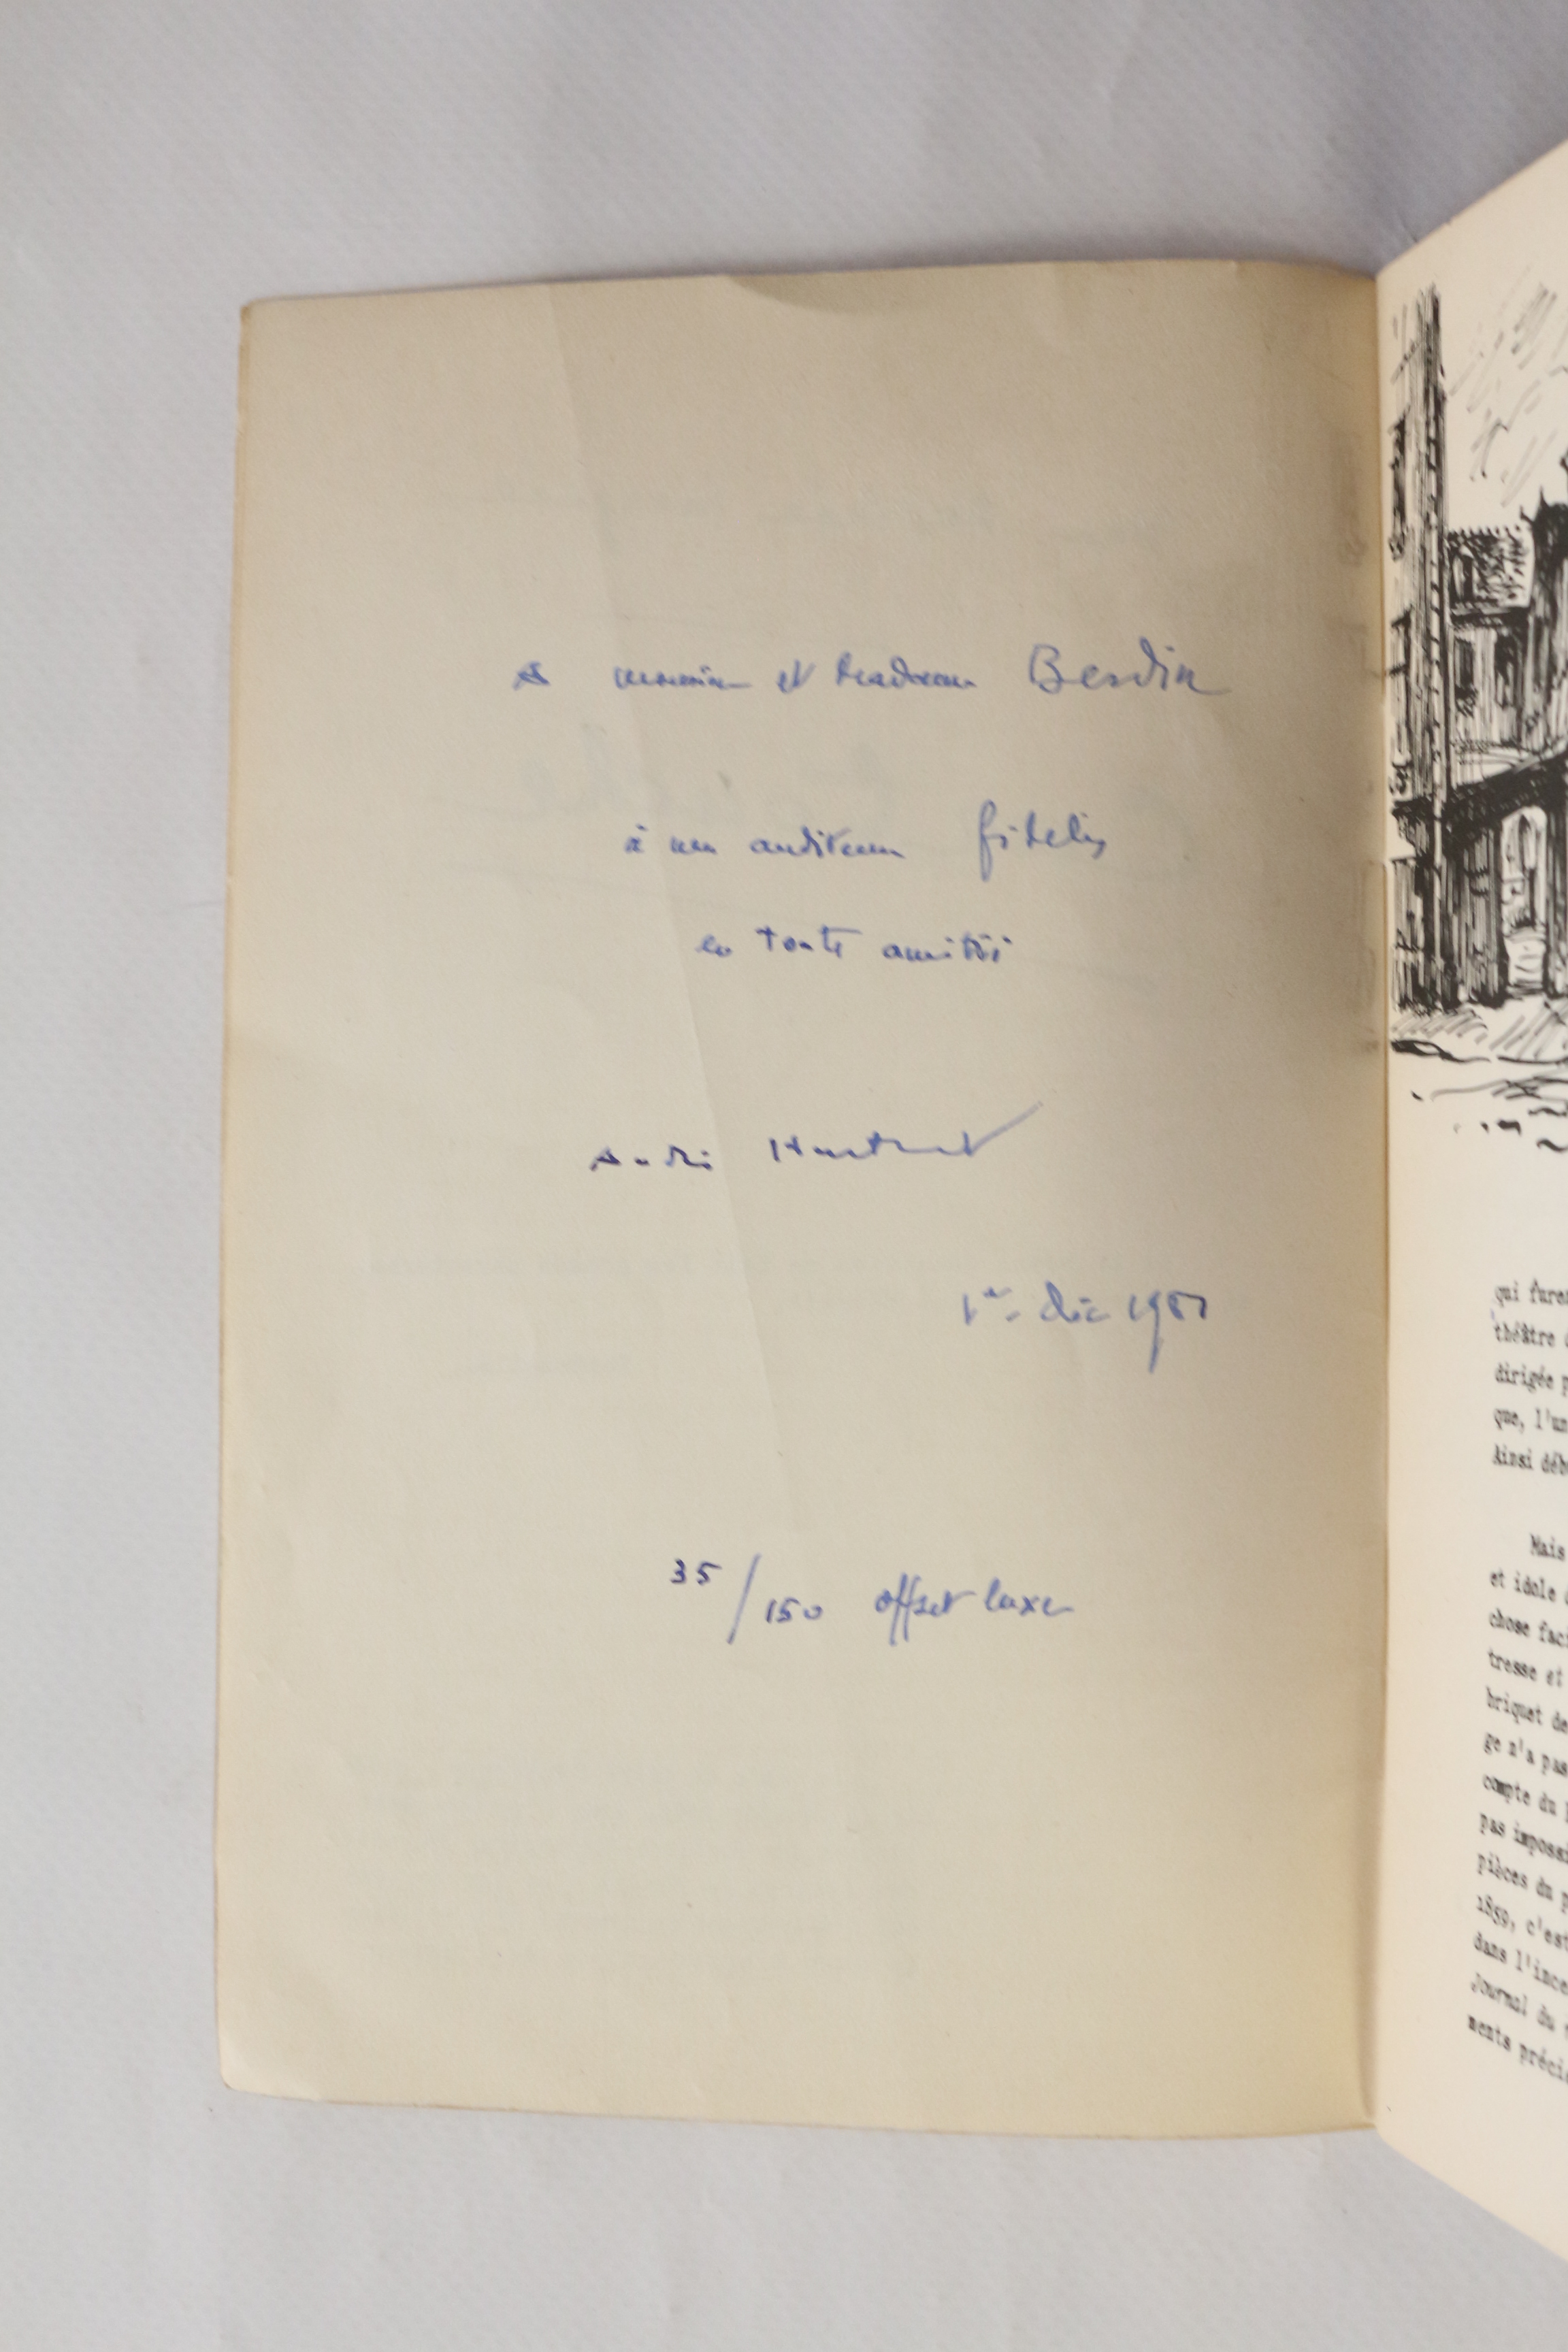 A monsieur et madame Berdin
à mes auditeurs fidèles
en toute amitié
André
1er déc 1951
35/150 offset luxe
qui furen
théâtre
dirigée p
que, l'un
Ainsi déb
Mais
et idole
chose faci
tresse et
briquet de
ge n'a pas
compte du
pas impossi
pièces du p
1859, c'est
dans l'ince
Journal du
ments préci